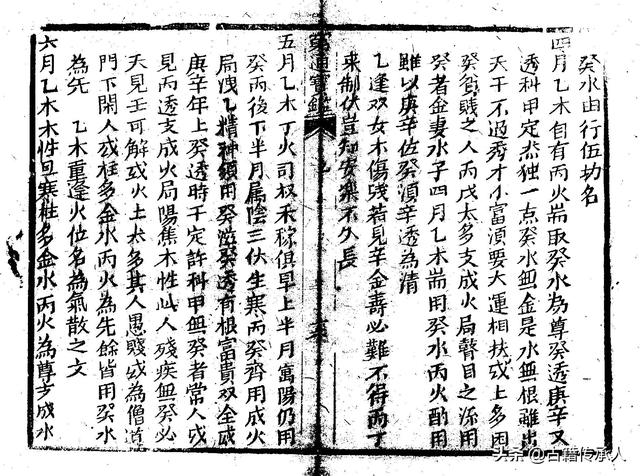 癸水由行伍功名
四月乙木自有丙火耑取癸水為尊癸透庚辛又
透科甲定然独一点癸水無金是水無根雖出
天干不過秀才小富須要大運相扶或上多困
癸貧賤之人丙戊太多支成火局瞽目之流用
癸者金妻水子四月乙木耑用癸水丙火酌用
雖以庚辛佐癸須辛透為清
乙逢双女木傷残若見辛金壽必難不得丙丁
來制伏豈知安樂不久長
窮通寶鑑
五月乙木丁火司权禾稼俱旱上半月寓陽仍用
癸丙後下半月属陰三伏生寒丙癸齊用成火
局洩乙精神須用癸滋癸透有根富貴双全或
庚辛年上癸透時干定許科甲無癸者常人或
見丙透支成火局陽焦木性此人残疾無癸必
夭見壬可解或火土太多其人愚賤或為僧道
門下閑人或柱多金水丙火為先餘皆用癸水
為先 乙木重逢火位名為氣散之文
六月乙木木性且寒柱多金水丙火為尊支成水
头条 @古籍传承人